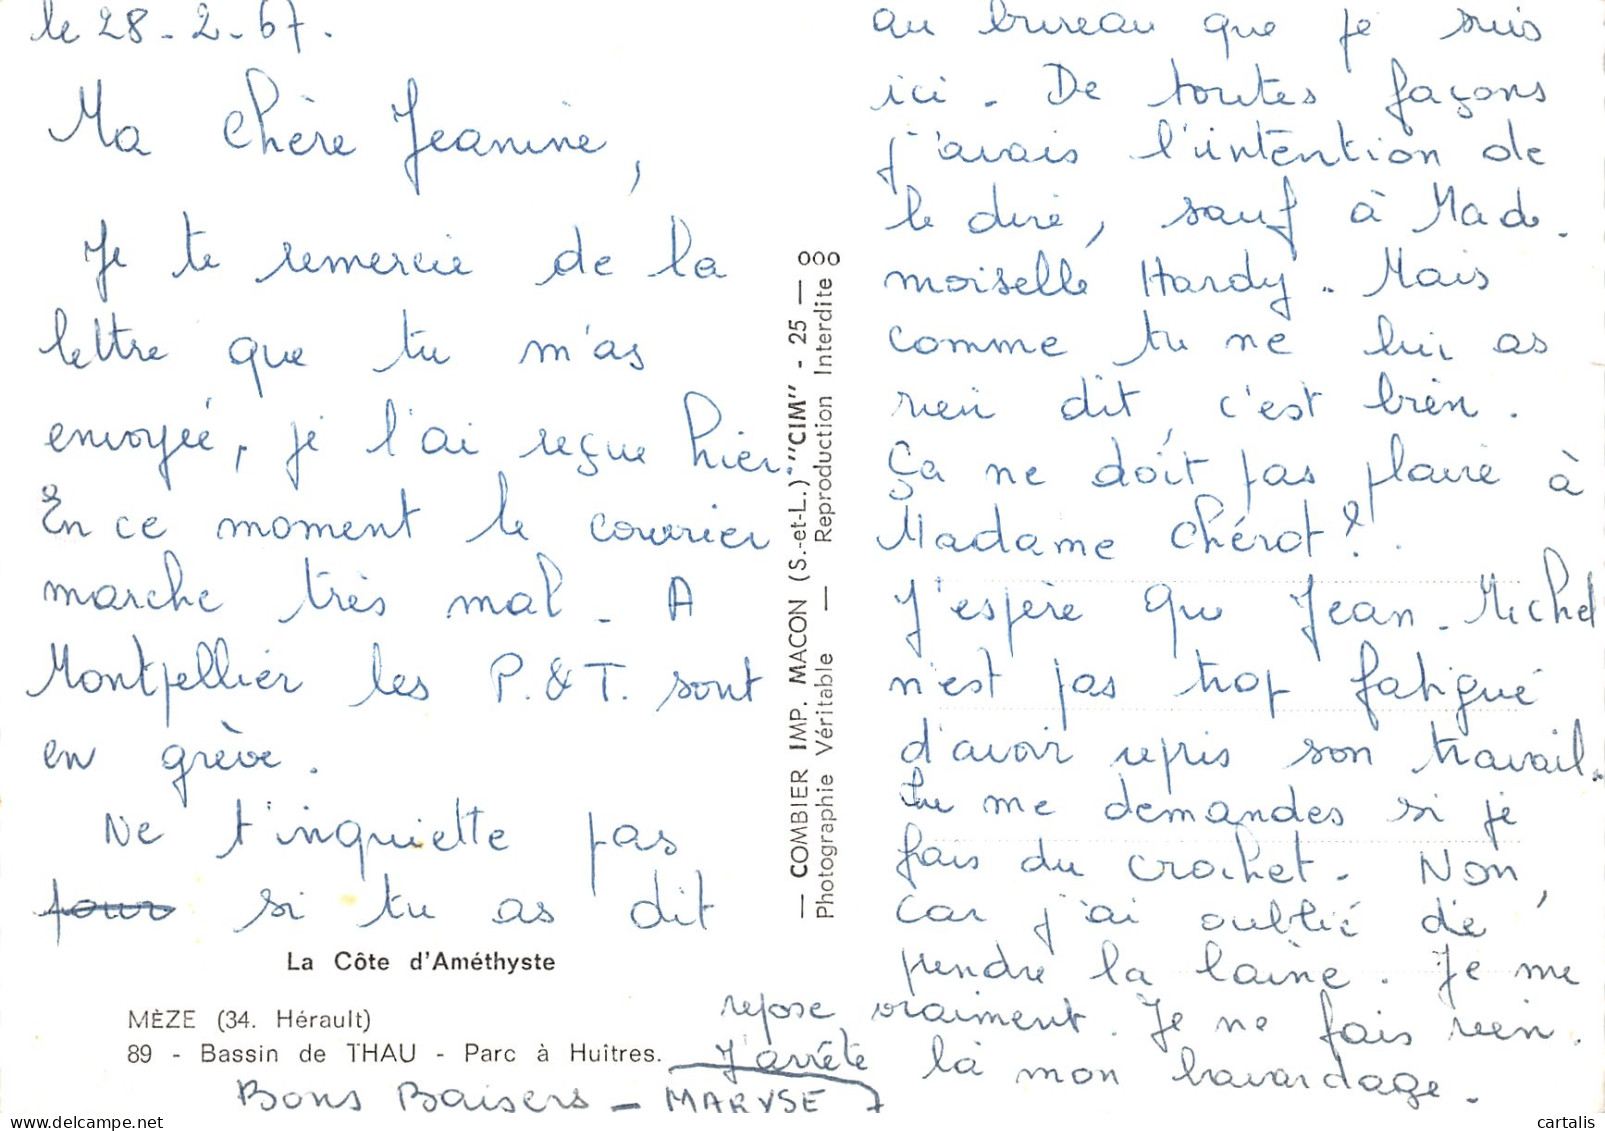 le 28-2-67.
Ma Chère Jeanine,
Je te remercie de la
lettre que tu m'as
envoyée, je l'ai reçue hier.
En ce moment le courrier
marche très mal. A
Montpellier les P.&T. sont
en grève.
Ne t'inquiette pas
pour si tu as dit
au bureau que je suis
ici. De toutes façons
j'avais l'intention de
le dire, sauf à Made-
moiselle Hardy. Mais
comme tu ne lui as
rien dit, c'est bien.
Ça ne doit pas plaire à
Madame Chérot!.
J'espère que Jean-Michel
n'est pas trop fatigué
d'avoir repris son travail.
Tu me demandes si je
fais du crochet. Non,
car j'ai oublié de
prendre la laine. Je me
repose vraiment. Je ne fais rien.
J'arrête là mon bavardage.
Bons Baisers - MARYSE
La Côte d'Améthyste
MÈZE (34. Hérault)
89 - Bassin de THAU - Parc à Huîtres.
— COMBIER IMP. MACON (S.-et-L.) "CIM" - 25 —
Photographie Véritable — Reproduction Interdite 8
cartalis